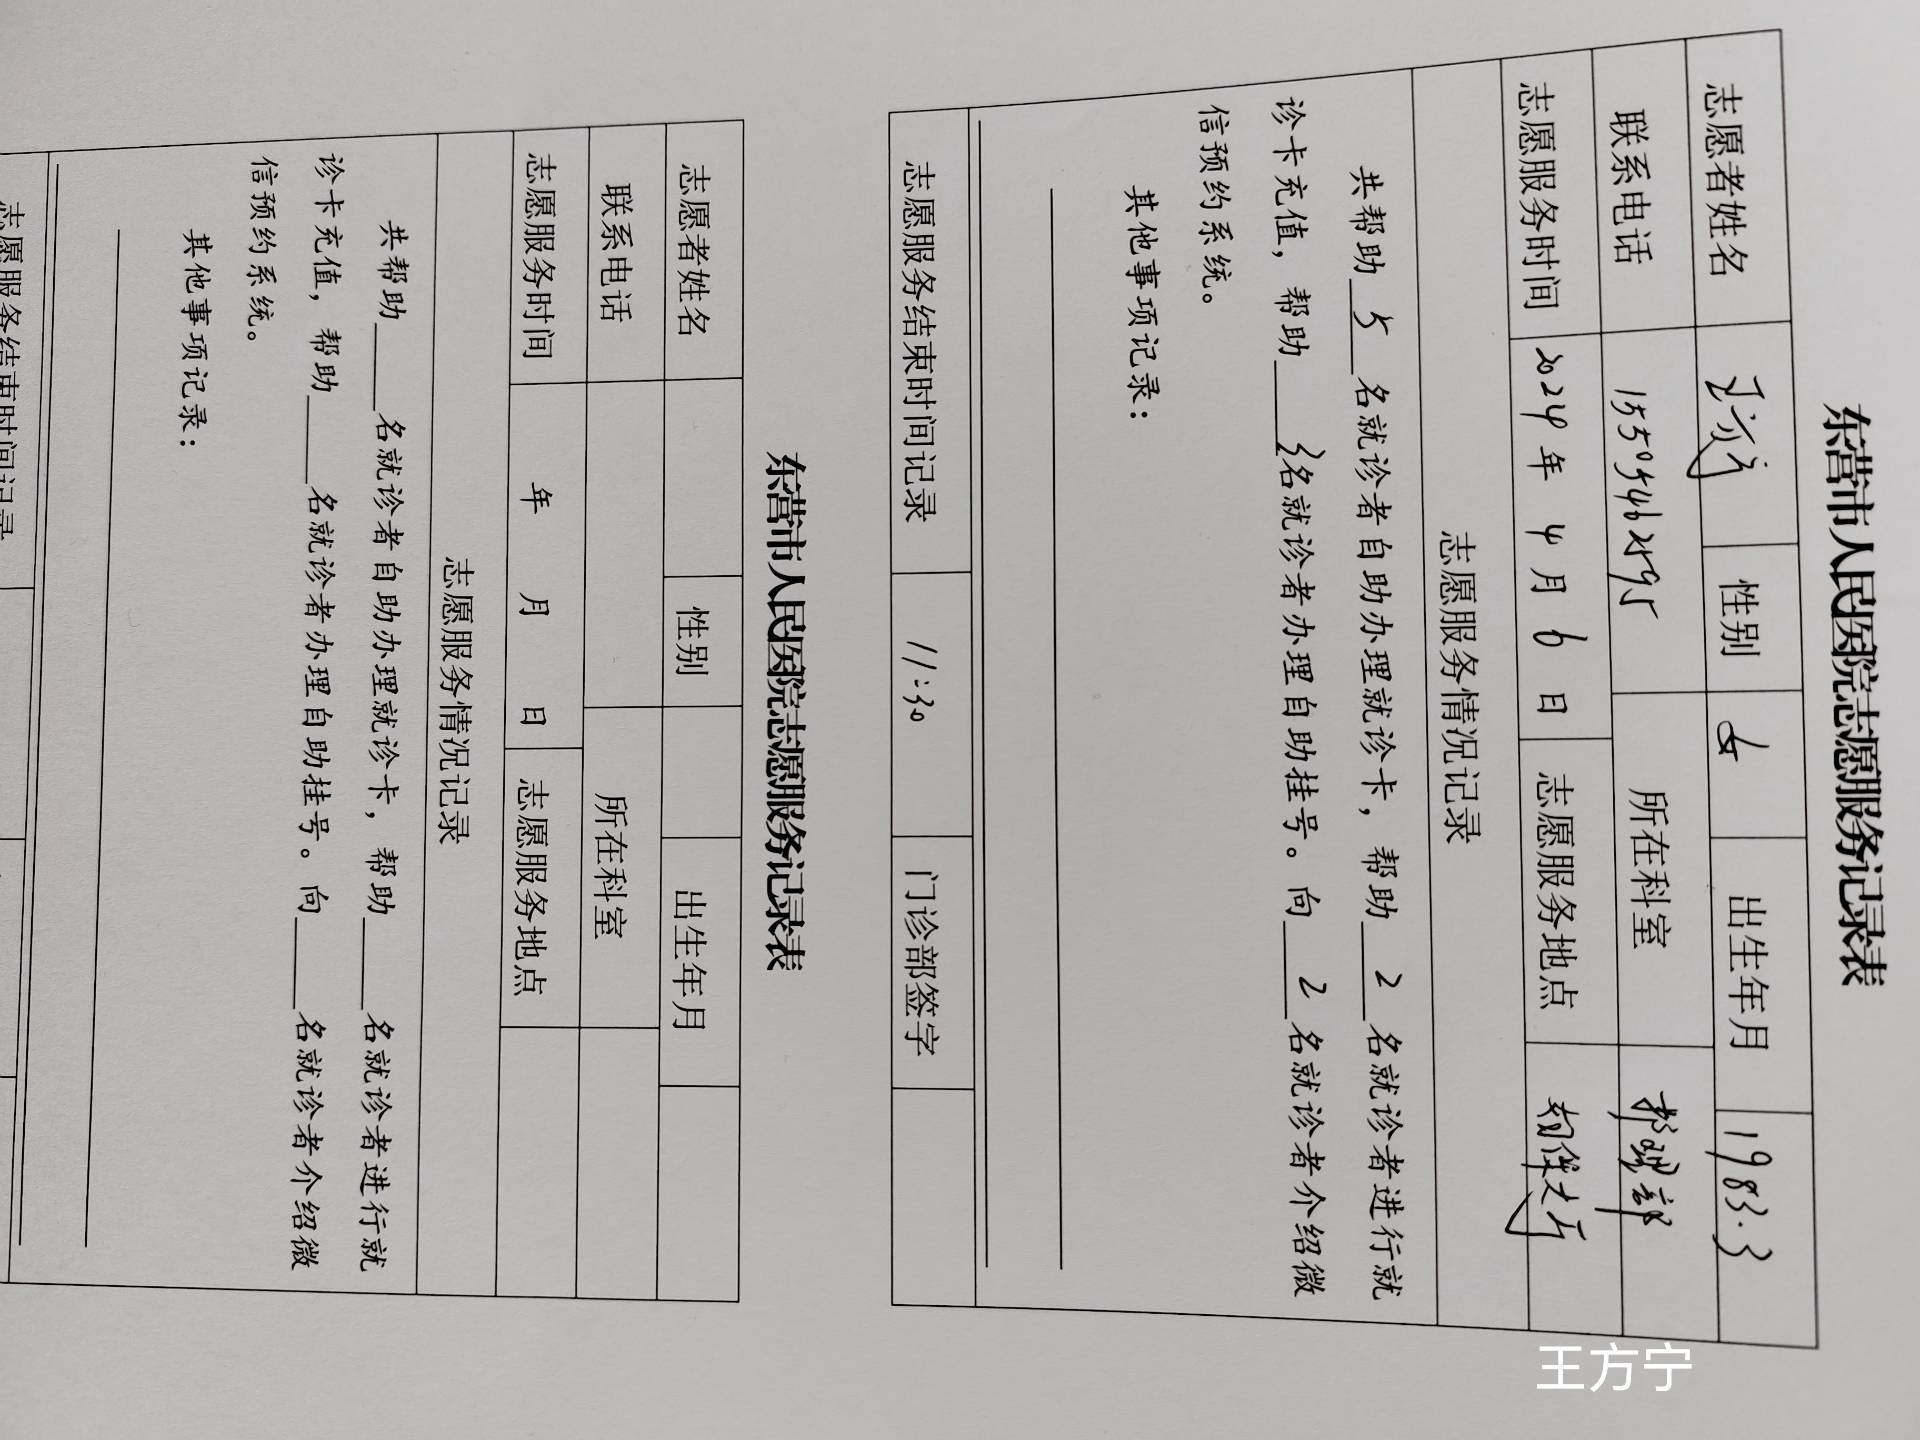 东营市人民医院志愿服务记录表
志愿者姓名 王方宁 性别 女 出生年月 1983.3
联系电话 15505462595 所在科室 护理部
志愿服务时间 2024年 4月 6日 志愿服务地点 大厅
志愿服务情况记录
共帮助 5 名就诊者自助办理就诊卡，帮助 2 名就诊者进行就
诊卡充值，帮助 3 名就诊者办理自助挂号。向 2 名就诊者介绍微
信预约系统。
其他事项记录：
志愿服务结束时间记录 11:30 门诊部签字
东营市人民医院志愿服务记录表
志愿者姓名 性别 出生年月
联系电话 所在科室
志愿服务时间 年 月 日 志愿服务地点
志愿服务情况记录
共帮助____名就诊者自助办理就诊卡，帮助____名就诊者进行就
诊卡充值，帮助____名就诊者办理自助挂号。向____名就诊者介绍微
信预约系统。
其他事项记录：
志愿服务结束时间记录
王方宁